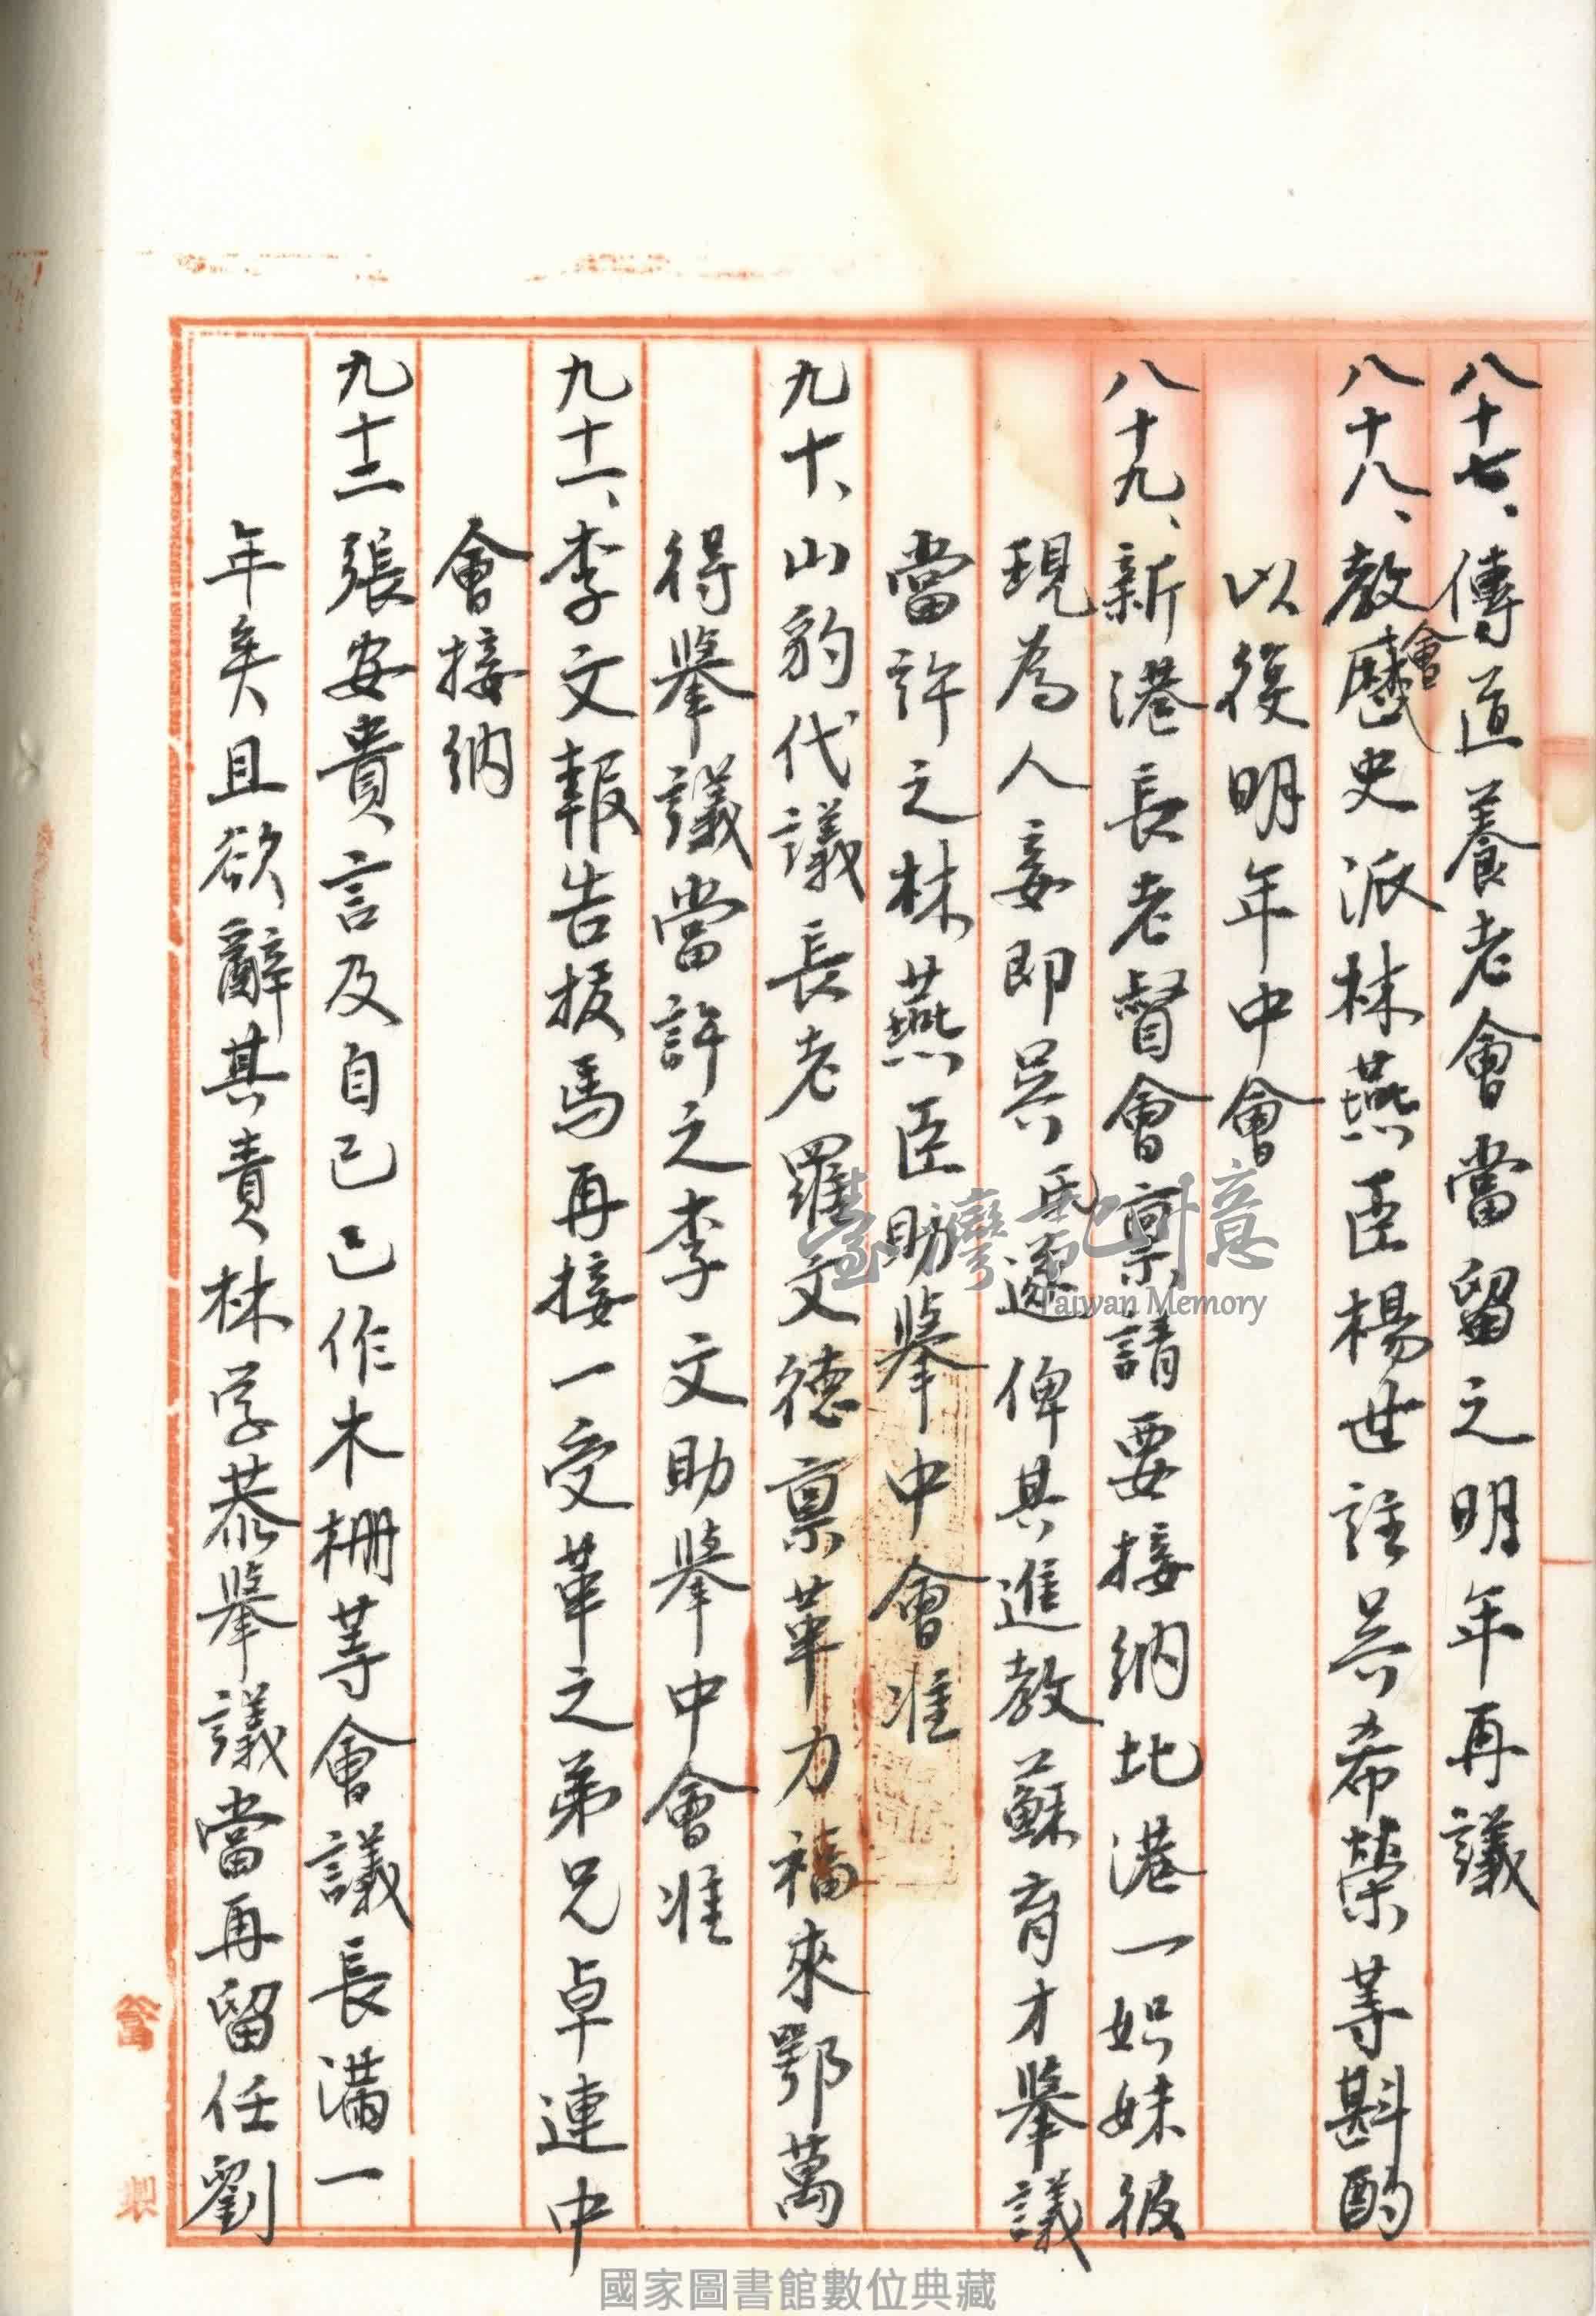 八十七、傳道養老會當留之明年再議
八十八、教會歷史派林燕臣楊世註吳希榮等斟酌
以後明年中會
八十九、新港長老督會禀請要接納北港一姊妹彼
現為人妾即吳氏邃俾其進教蘇育才舉議
當許之林燕臣助舉中會准
九十、山豹代議長老羅文德禀革力福來鄂萬
得舉議當許之李文助舉中會准
九十一、李文報告拔馬再接一受革之弟兄卓連中
會接納
九十二張安貴言及自己已作木柵等會議長滿一
年矣且欲辭其責林学恭舉議當再留任劉
臺灣記憶
Taiwan Memory
國家圖書館數位典藏